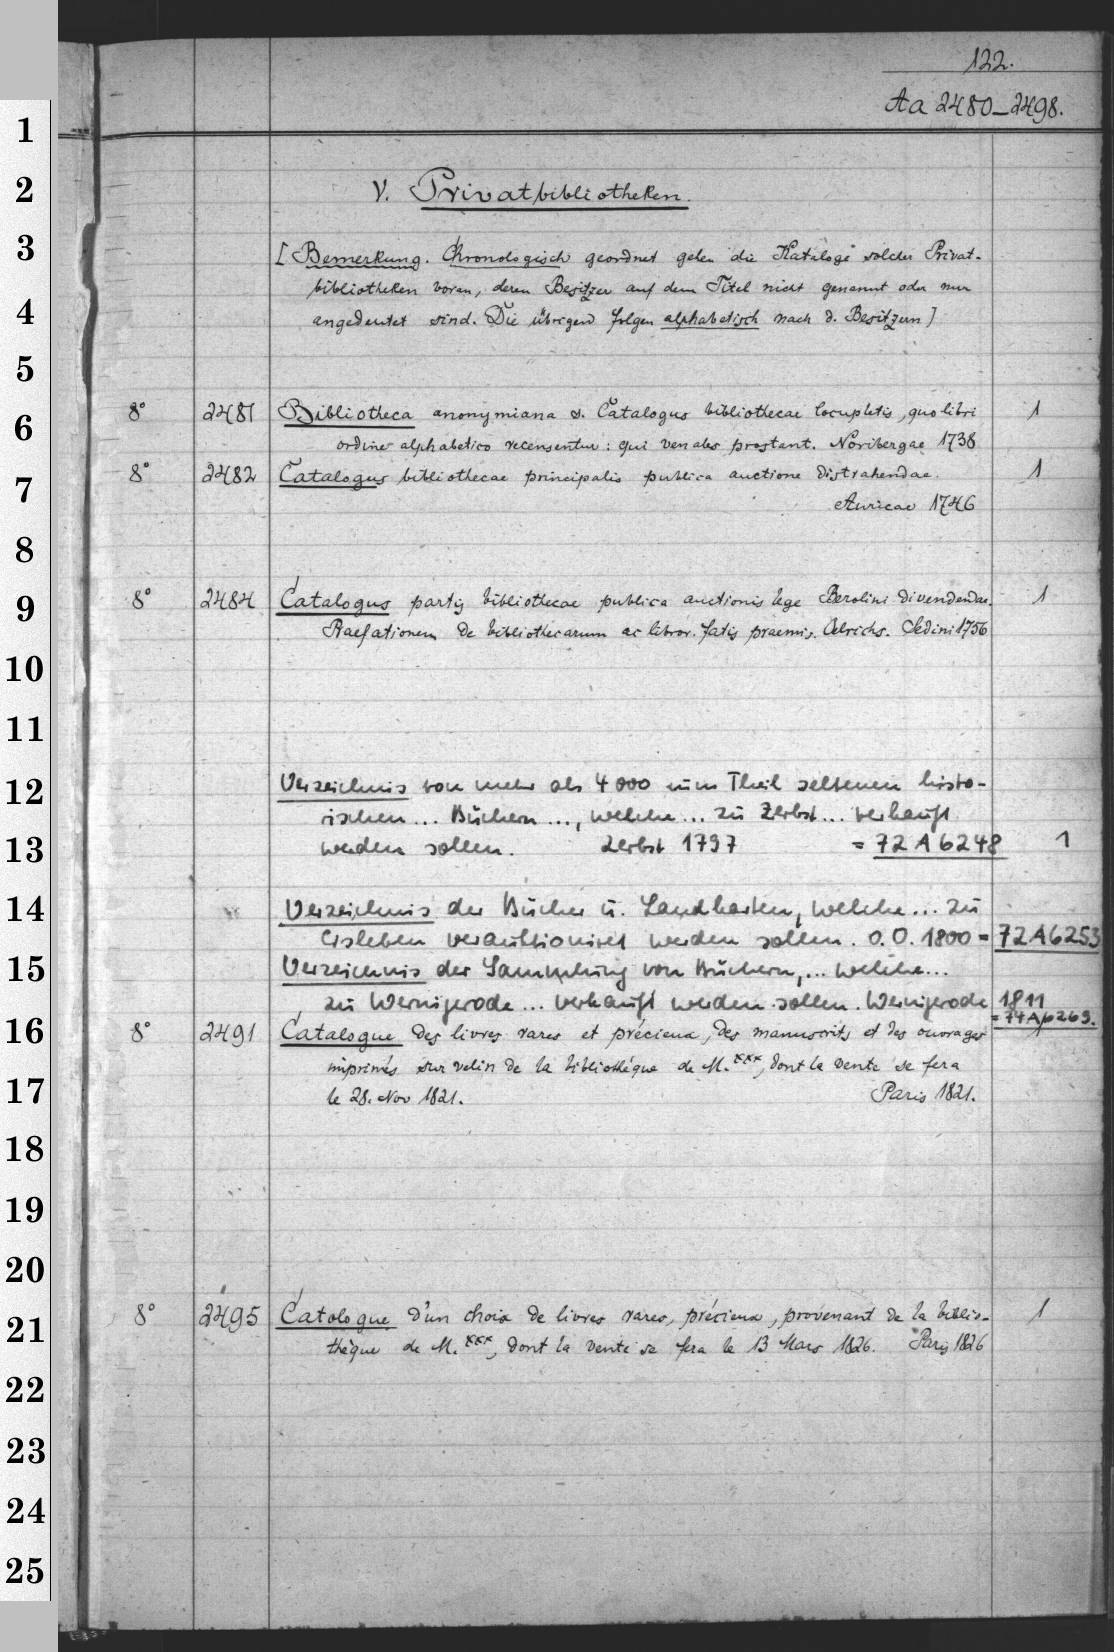 122.
Aa 2480-2498.
V. Privatbibliotheken.
[Bemerkung. Chronologisch geordnet gehen die Kataloge solcher Privat-
bibliotheken voran, deren Besitzer auf dem Titel nicht genannt oder nur
angedeutet sind. Die übrigen folgen alphabetisch nach d. Besitzern]
8° 2481 Bibliotheca anonymiana s. Catalogus bibliothecae locupletis, quo libri 1
ordine alphabetico recensentur: qui venales prostant. Noribergae 1738
8° 2482 Catalogus bibliothecae principalis publica auctione distrahendae. 1
Auricae 1746
8° 2484 Catalogus partis bibliothecae publica auctionis lege Berolini divendendae. 1
Praefationem de bibliothecarum ac libror. fatis praemis. Oelrichs. Sedini 1756
Verzeichnis von mehr als 4000 zum Theil seltenen histo-
rischen... Büchern..., welche... zu Zerbst... verkauft
werden sollen. Zerbst 1797 = 72 A 6248 1
Verzeichnis der Bücher u. Landkarten, welche... zu
Eisleben verauktioniret werden sollen. O.O. 1800 = 72 A 6253
Verzeichnis der Sammlung von Büchern,... welche...
zu Wernigerode... verkauft werden sollen. Wernigerode 1811
= 74 A 6263.
8° 2491 Catalogue des livres rares et précieux, des manuscrits et des ouvrages
imprimés sur velin de la bibliothéque de M.xxx, dont la vente se fera
le 28. Nov 1821. Paris 1821.
8° 2495 Catologue d'un choix de livres rares, précieux, provenant de la biblio- 1
thèque de M.xxx, dont la vente se fera le 13 Mars 1826. Paris 1826
1
2
3
4
5
6
7
8
9
10
11
12
13
14
15
16
17
18
19
20
21
22
23
24
25